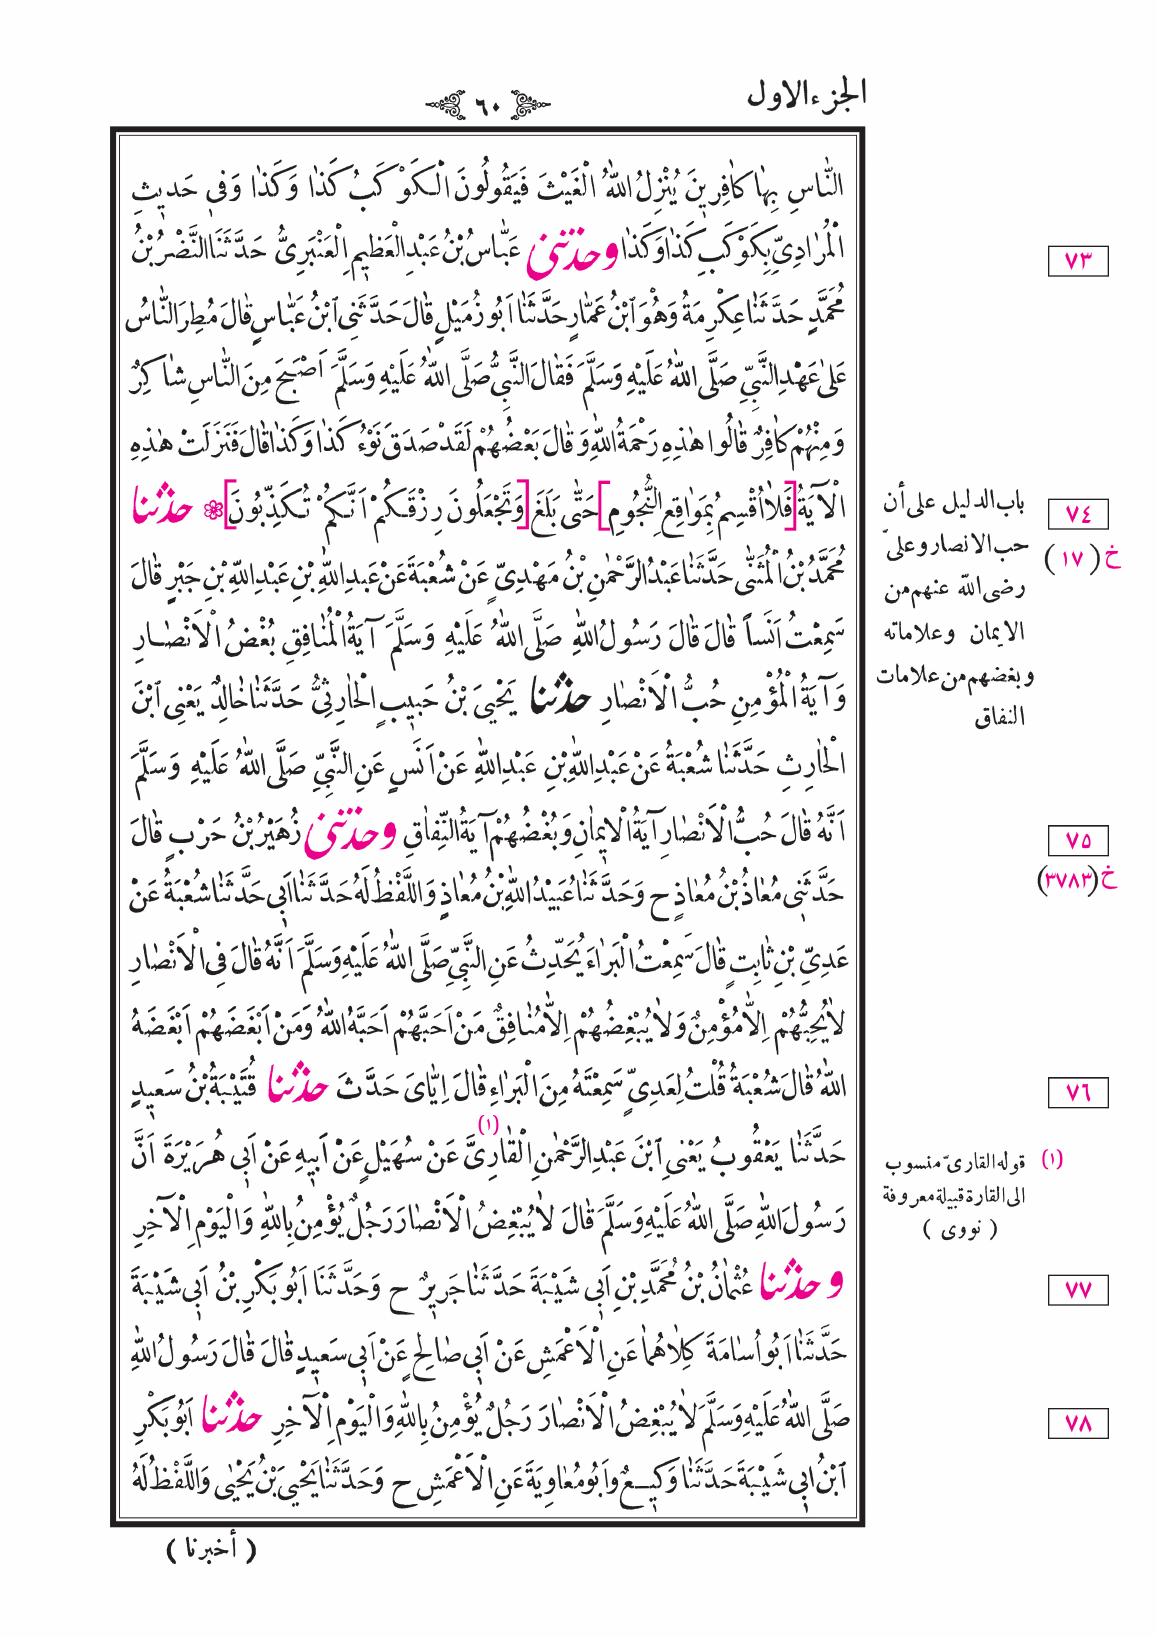 الجزء الاول
٦٠
النَّاسِ بِهَا كَافِرِينَ يُنْزِلُ اللهُ الْغَيْثَ فَيَقُولُونَ الْكَوْكَبُ كَذَا وَكَذَا وَفِى حَدِيثِ
الْمُرَادِىِّ بِكَوْكَبِ كَذَا وَكَذَا وحدثنى عَبَّاسُ بْنُ عَبْدِ الْعَظِيمِ الْعَنْبَرِىُّ حَدَّثَنَا النَّضْرُ بْنُ
٧٣
مُحَمَّدٍ حَدَّثَنَا عِكْرِمَةُ وَهُوَ ابْنُ عَمَّارٍ حَدَّثَنَا اَبُو زُمَيْلٍ قَالَ حَدَّثَنِى ابْنُ عَبَّاسٍ قَالَ مُطِرَ النَّاسُ
عَلَى عَهْدِ النَّبِىِّ صَلَّى اللهُ عَلَيْهِ وَسَلَّمَ فَقَالَ النَّبِىُّ صَلَّى اللهُ عَلَيْهِ وَسَلَّمَ اَصْبَحَ مِنَ النَّاسِ شَاكِرٌ
وَمِنْهُمْ كَافِرٌ قَالُوا هٰذِهِ رَحْمَةُ اللهِ وَقَالَ بَعْضُهُمْ لَقَدْ صَدَقَ نَوْءُ كَذَا وَكَذَا قَالَ فَنَزَلَتْ هٰذِهِ
الْآيَةُ [فَلَا اُقْسِمُ بِمَوَاقِعِ النُّجُومِ] حَتَّى بَلَغَ [وَتَجْعَلُونَ رِزْقَكُمْ اَنَّكُمْ تُكَذِّبُونَ] * حدثنا
٧٤
خ (١٧)
باب الدليل على أن
حب الانصار وعلىّ
رضى الله عنهم من
الايمان وعلاماته
وبغضهم من علامات
النفاق
مُحَمَّدُ بْنُ الْمُثَنَّى حَدَّثَنَا عَبْدُ الرَّحْمٰنِ بْنُ مَهْدِىٍّ عَنْ شُعْبَةَ عَنْ عَبْدِ اللهِ بْنِ عَبْدِ اللهِ بْنِ جَبْرٍ قَالَ
سَمِعْتُ اَنَساً قَالَ قَالَ رَسُولُ اللهِ صَلَّى اللهُ عَلَيْهِ وَسَلَّمَ آيَةُ الْمُنَافِقِ بُغْضُ الْاَنْصَارِ
وَآيَةُ الْمُؤْمِنِ حُبُّ الْاَنْصَارِ حدثنا يَحْيَى بْنُ حَبِيبٍ الْحَارِثِىُّ حَدَّثَنَا خَالِدٌ يَعْنِى ابْنَ
الْحَارِثِ حَدَّثَنَا شُعْبَةُ عَنْ عَبْدِ اللهِ بْنِ عَبْدِ اللهِ عَنْ اَنَسٍ عَنِ النَّبِىِّ صَلَّى اللهُ عَلَيْهِ وَسَلَّمَ
اَنَّهُ قَالَ حُبُّ الْاَنْصَارِ آيَةُ الْاِيمَانِ وَبُغْضُهُمْ آيَةُ النِّفَاقِ وحدثنى زُهَيْرُ بْنُ حَرْبٍ قَالَ
٧٥
خ (٣٧٨٣)
حَدَّثَنِى مُعَاذُ بْنُ مُعَاذٍ ح وَحَدَّثَنَا عُبَيْدُ اللهِ بْنُ مُعَاذٍ وَاللَّفْظُ لَهُ حَدَّثَنَا اَبِى حَدَّثَنَا شُعْبَةُ عَنْ
عَدِىِّ بْنِ ثَابِتٍ قَالَ سَمِعْتُ الْبَرَاءَ يُحَدِّثُ عَنِ النَّبِىِّ صَلَّى اللهُ عَلَيْهِ وَسَلَّمَ اَنَّهُ قَالَ فِى الْاَنْصَارِ
لَا يُحِبُّهُمْ اِلَّا مُؤْمِنٌ وَلَا يُبْغِضُهُمْ اِلَّا مُنَافِقٌ مَنْ اَحَبَّهُمْ اَحَبَّهُ اللهُ وَمَنْ اَبْغَضَهُمْ اَبْغَضَهُ
اللهُ قَالَ شُعْبَةُ قُلْتُ لِعَدِىٍّ سَمِعْتَهُ مِنَ الْبَرَاءِ قَالَ اِيَّاىَ حَدَّثَ حدثنا قُتَيْبَةُ بْنُ سَعِيدٍ
٧٦
حَدَّثَنَا يَعْقُوبُ يَعْنِى ابْنَ عَبْدِ الرَّحْمٰنِ الْقَارِىَّ (١) عَنْ سُهَيْلٍ عَنْ اَبِيهِ عَنْ اَبِى هُرَيْرَةَ اَنَّ
(١) قوله القارىّ منسوب
الى القارة قبيلة معروفة
( نووى )
رَسُولَ اللهِ صَلَّى اللهُ عَلَيْهِ وَسَلَّمَ قَالَ لَا يُبْغِضُ الْاَنْصَارَ رَجُلٌ يُؤْمِنُ بِاللهِ وَالْيَوْمِ الْآخِرِ
وحدثنا عُثْمَانُ بْنُ مُحَمَّدِ بْنِ اَبِى شَيْبَةَ حَدَّثَنَا جَرِيرٌ ح وَحَدَّثَنَا اَبُو بَكْرِ بْنُ اَبِى شَيْبَةَ
٧٧
حَدَّثَنَا اَبُو اُسَامَةَ كِلَاهُمَا عَنِ الْاَعْمَشِ عَنْ اَبِى صَالِحٍ عَنْ اَبِى سَعِيدٍ قَالَ قَالَ رَسُولُ اللهِ
صَلَّى اللهُ عَلَيْهِ وَسَلَّمَ لَا يُبْغِضُ الْاَنْصَارَ رَجُلٌ يُؤْمِنُ بِاللهِ وَالْيَوْمِ الْآخِرِ حدثنا اَبُو بَكْرِ
٧٨
ابْنُ اَبِى شَيْبَةَ حَدَّثَنَا وَكِيعٌ وَاَبُو مُعَاوِيَةَ عَنِ الْاَعْمَشِ ح وَحَدَّثَنَا يَحْيَى بْنُ يَحْيٰى وَاللَّفْظُ لَهُ
( أخبرنا )